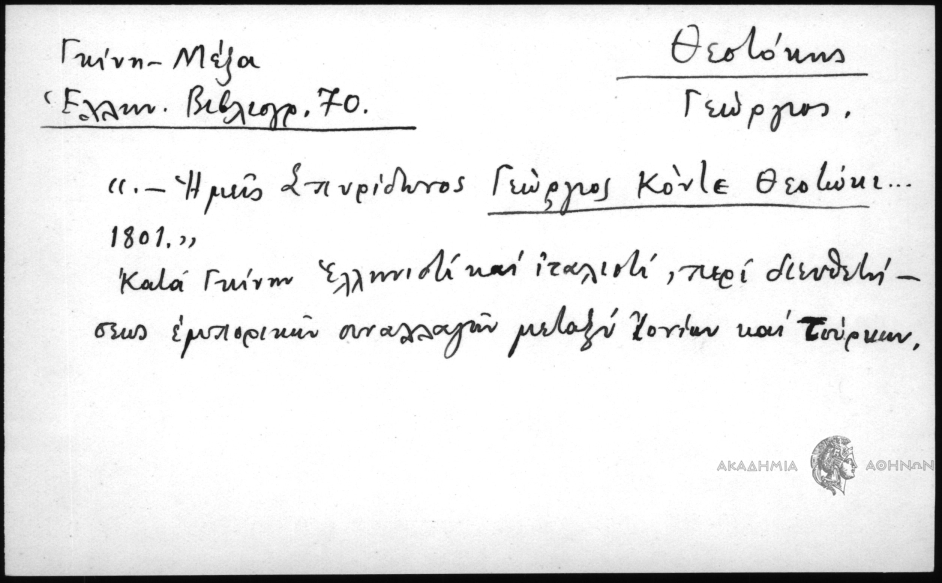 Γκίνη - Μέξα
Ἑλλην. Βιβλιογρ. 70.
Θεοτόκης
Γεώργιος.
«.- Ἡμεῖς Σπυρίδωνος Γεώργιος Κόντε Θεοτόκι...
1801.»
Κατά Γκίνην Ἑλληνιστί καί ἰταλιστί, περί διευθετή-
σεως ἐμπορικῶν συναλλαγῶν μεταξύ Ἰονίων καί Τούρκων.
ΑΚΑΔΗΜΙΑ ΑΘΗΝΩΝ